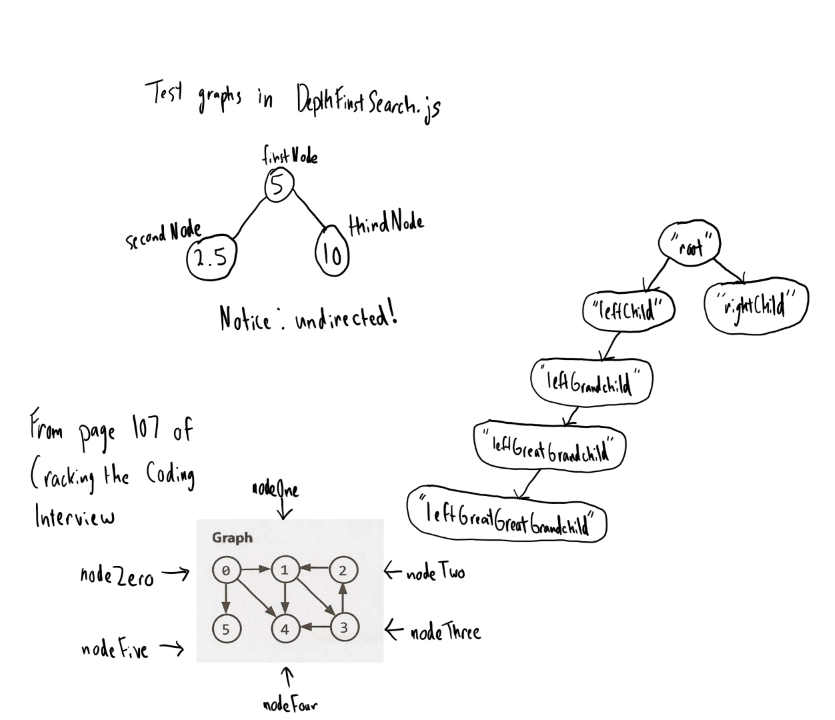 Test graphs in DepthFirstSearch.js
firstNode
5
secondNode
thirdNode
2.5
10
Notice: undirected!
"root"
"leftChild"
"rightChild"
"leftGrandchild"
"leftGreatGrandchild"
"leftGreatGreatGrandchild"
From page 107 of
Cracking the Coding
Interview
nodeOne
Graph
nodeZero
0
1
2
nodeTwo
5
4
3
nodeThree
nodeFive
nodeFour